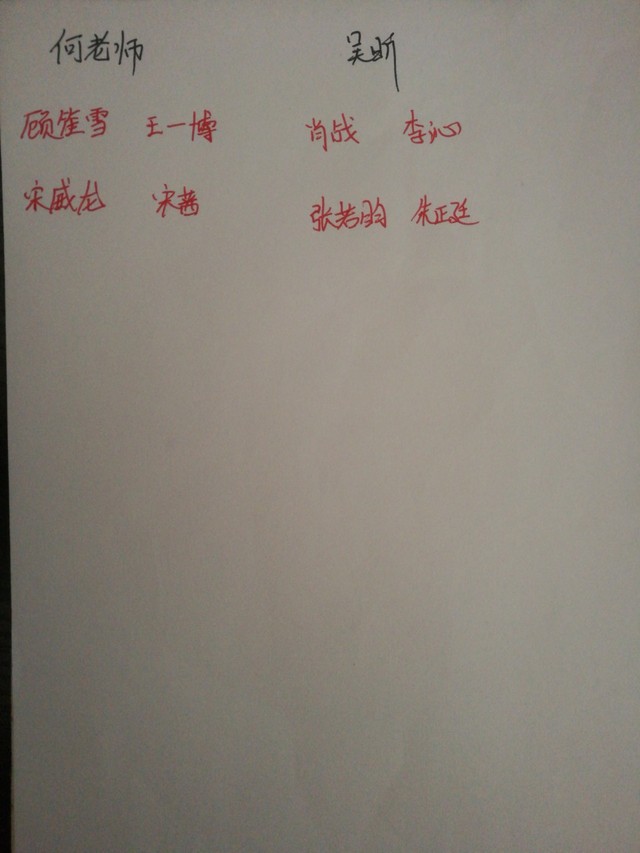 何老师 吴昕
顾隹雪 王一博 肖战 李沁
宋威龙 宋茜 张若昀 朱正廷